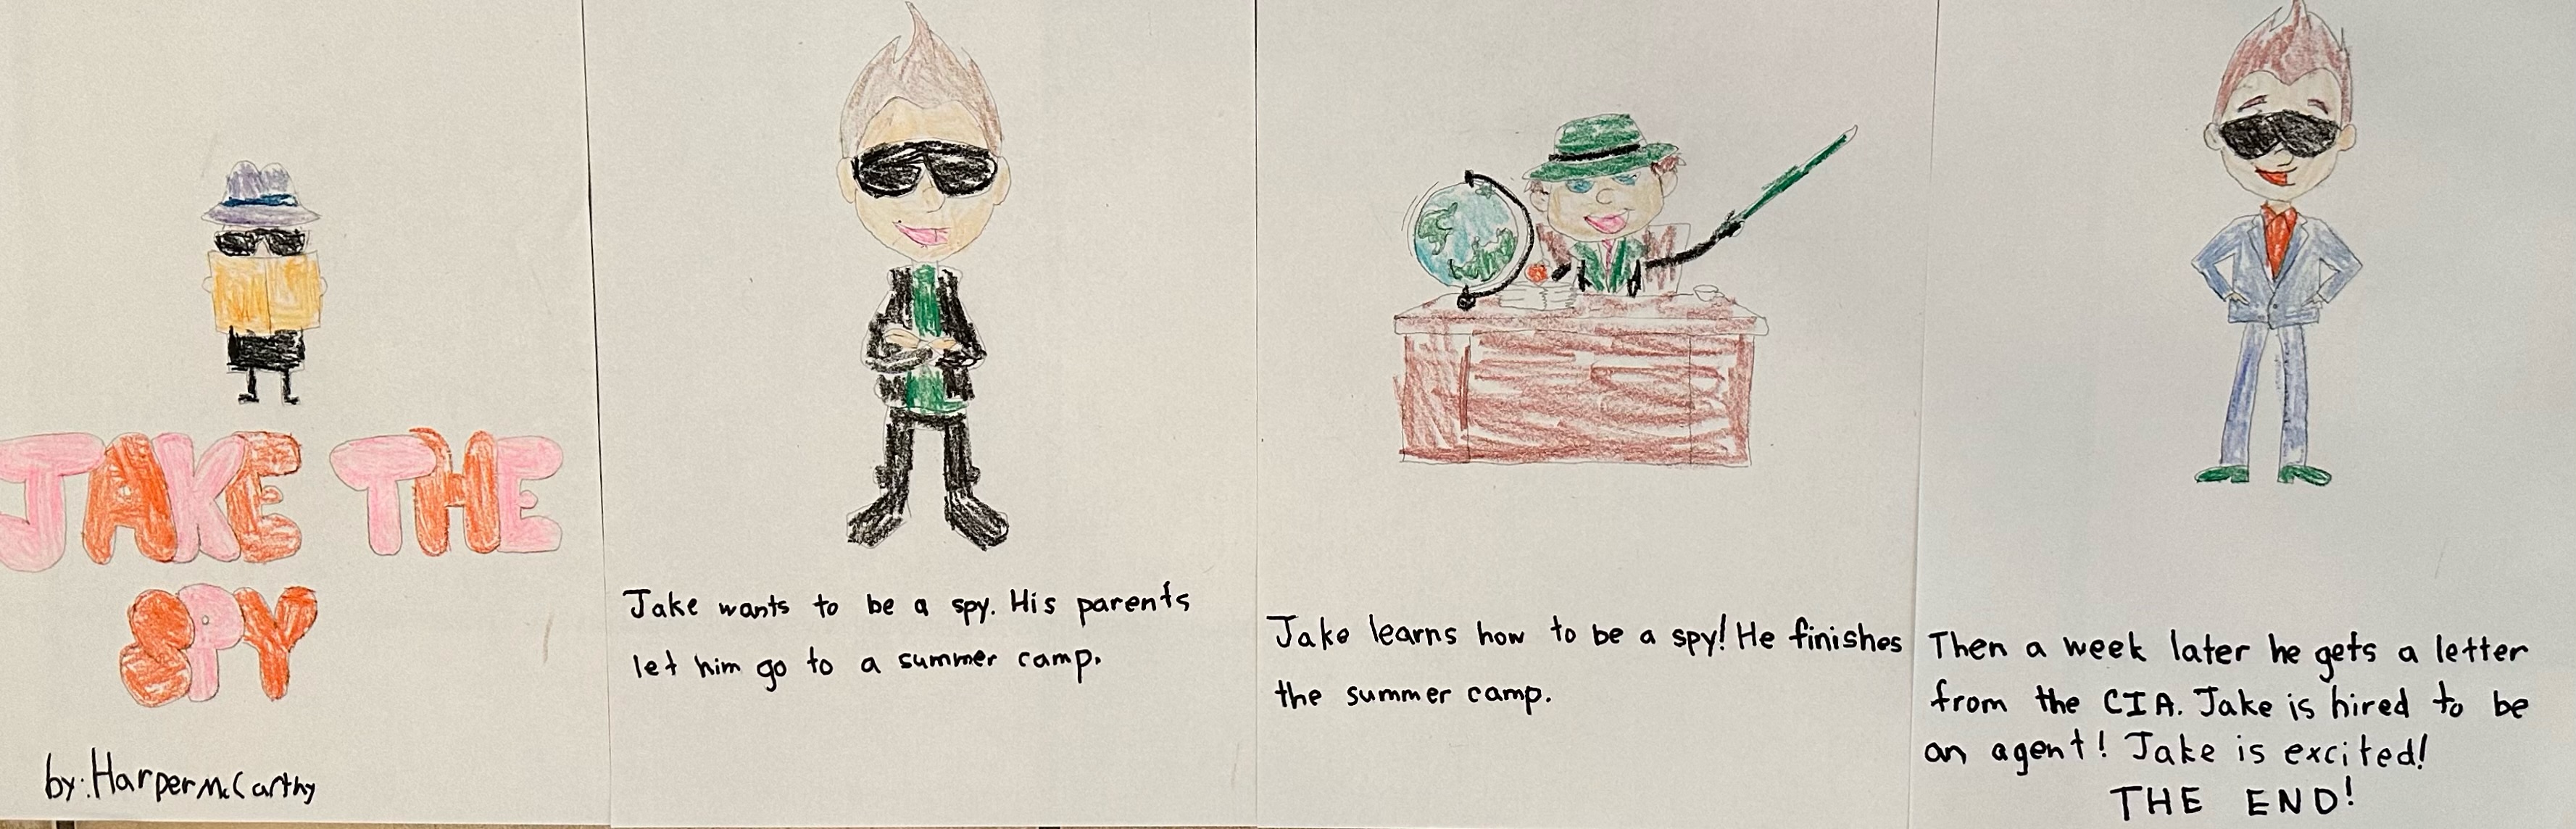 JAKE THE
SPY
by: Harper McCarthy
Jake wants to be a spy. His parents
let him go to a summer camp.
Jake learns how to be a spy! He finishes
the summer camp.
Then a week later he gets a letter
from the CIA. Jake is hired to be
an agent! Jake is excited!
THE END!